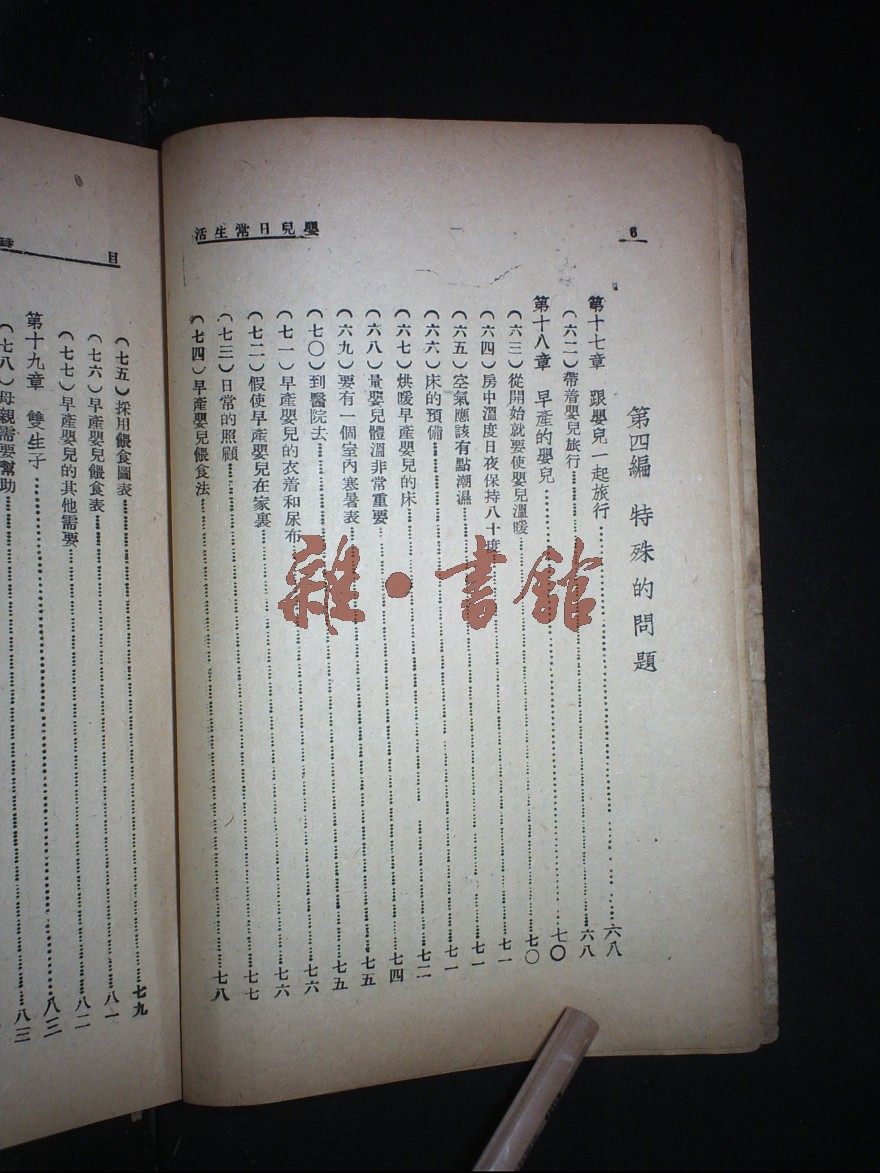 6
嬰兒日常生活
第四編 特殊的問題
第十七章 跟嬰兒一起旅行……六八
（六二）帶着嬰兒旅行……六八
第十八章 早產的嬰兒……七〇
（六三）從開始就要使嬰兒溫暖……七〇
（六四）房中溫度日夜保持八十度……七一
（六五）空氣應該有點潮濕……七一
（六六）床的預備……七一
（六七）烘暖早產嬰兒的床……七二
（六八）量嬰兒體溫非常重要……七四
（六九）要有一個室內寒暑表……七五
（七〇）到醫院去……七五
（七一）早產嬰兒的衣着和尿布……七六
（七二）假使早產嬰兒在家裏……七六
（七三）日常的照顧……七七
（七四）早產嬰兒餵食法……七八
目
（七五）採用餵食圖表……七九
（七六）早產嬰兒餵食表……八一
（七七）早產嬰兒的其他需要……八二
第十九章 雙生子……八三
（七八）母親需要幫助……八三
雜·書館